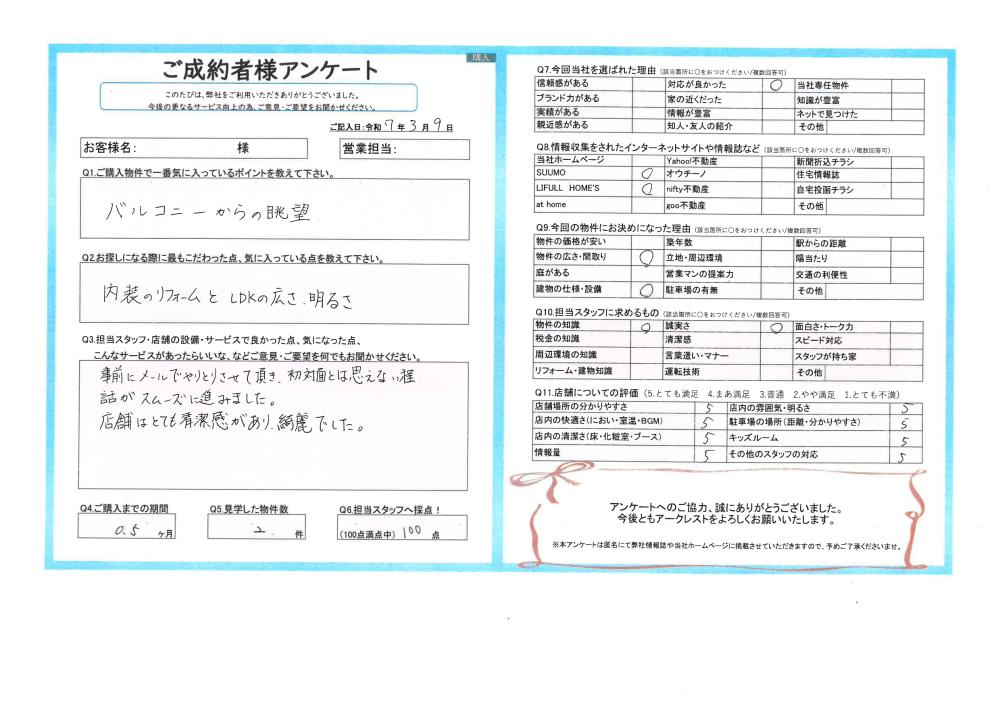 購入
ご成約者様アンケート
このたびは、弊社をご利用いただきありがとうございました。
今後の更なるサービス向上の為、ご意見・ご要望をお聞かせください。
ご記入日:令和 7 年 3 月 9 日
お客様名: 様 営業担当:
Q1.ご購入物件で一番気に入っているポイントを教えて下さい。
バルコニーからの眺望
Q2.お探しになる際に最もこだわった点、気に入っている点を教えて下さい。
内装のリフォームと LDKの広さ、明るさ
Q3.担当スタッフ・店舗の設備・サービスで良かった点、気になった点、
こんなサービスがあったらいいな、などご意見・ご要望を何でもお聞かせください。
事前にメールでやりとりさせて頂き、初対面とは思えない程
話がスムーズに進みました。
店舗はとても清潔感があり、綺麗でした。
Q4.ご購入までの期間 Q5.見学した物件数 Q6.担当スタッフへ採点！
0.5 ヶ月 2 件 (100点満点中) 100 点
Q7.今回当社を選ばれた理由 (該当箇所に○をおつけください/複数回答可)
信頼感がある 対応が良かった ○ 当社専任物件
ブランド力がある 家の近くだった 知識が豊富
実績がある 情報が豊富 ネットで見つけた
親近感がある 知人・友人の紹介 その他
Q8.情報収集をされたインターネットサイトや情報誌など (該当箇所に○をおつけください/複数回答可)
当社ホームページ Yahoo!不動産 新聞折込チラシ
SUUMO ○ オウチーノ 住宅情報誌
LIFULL HOME'S ○ nifty不動産 自宅投函チラシ
at home goo不動産 その他
Q9.今回の物件にお決めになった理由 (該当箇所に○をおつけください/複数回答可)
物件の価格が安い 築年数 駅からの距離
物件の広さ・間取り ○ 立地・周辺環境 陽当たり
庭がある 営業マンの提案力 交通の利便性
建物の仕様・設備 ○ 駐車場の有無 その他
Q10.担当スタッフに求めるもの (該当箇所に○をおつけください/複数回答可)
物件の知識 ○ 誠実さ ○ 面白さ・トーク力
税金の知識 清潔感 スピード対応
周辺環境の知識 言葉遣い・マナー スタッフが持ち家
リフォーム・建物知識 運転技術 その他
Q11.店舗についての評価 (5.とても満足 4.まあ満足 3.普通 2.やや満足 1.とても不満)
店舗場所の分かりやすさ 5 店内の雰囲気・明るさ 5
店内の快適さ(におい・室温・BGM) 5 駐車場の場所(距離・分かりやすさ) 5
店内の清潔さ(床・化粧室・ブース) 5 キッズルーム 5
情報量 5 その他のスタッフの対応 5
アンケートへのご協力、誠にありがとうございました。
今後ともアークレストをよろしくお願いいたします。
※本アンケートは匿名にて弊社情報誌や当社ホームページに掲載させていただきますので、予めご了承くださいませ。